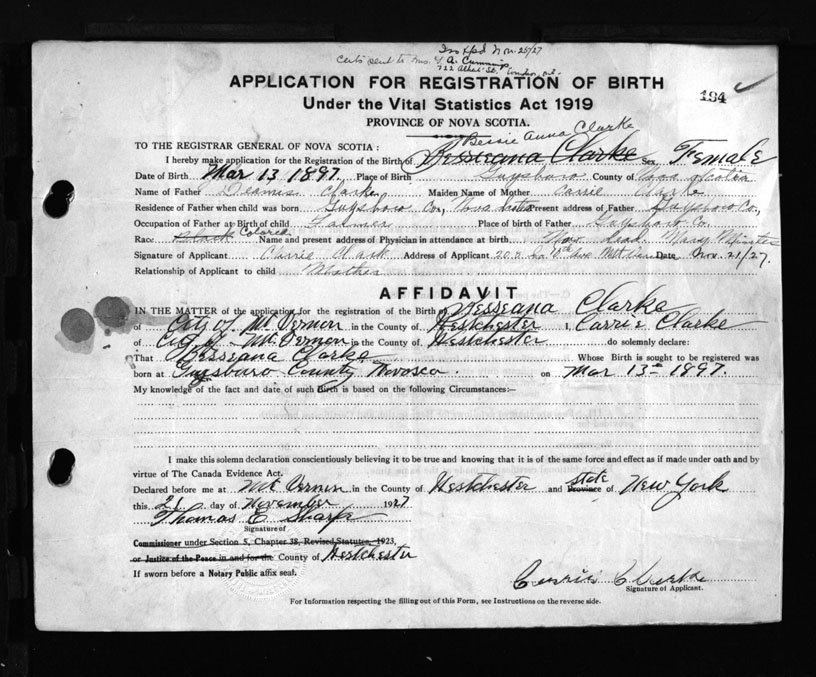 Nov. 25/27
Cert. sent to Mrs. A. Cumming
722 St., London, Ont.
APPLICATION FOR REGISTRATION OF BIRTH
194
Under the Vital Statistics Act 1919
PROVINCE OF NOVA SCOTIA.
Bessie Anna Clarke
TO THE REGISTRAR GENERAL OF NOVA SCOTIA :
I hereby make application for the Registration of the Birth of Besseana Clarke Sex Female
Date of Birth Mar 13 1897. Place of Birth Guysboro County of Nova Scotia
Name of Father Clarke Maiden Name of Mother Carrie Clarke
Residence of Father when child was born Guysboro Co., Nova Scotia Present address of Father Guysboro Co.,
Occupation of Father at Birth of child Farmer Place of birth of Father Guysboro Co.
Race Black Colored Name and present address of Physician in attendance at birth Now dead. Mary
Signature of Applicant Carrie Clark Address of Applicant Ave Date Nov. 21/27.
Relationship of Applicant to child Mother
AFFIDAVIT
IN THE MATTER of the application for the registration of the Birth of Besseana Clarke
of City of Mt Vernon in the County of Westchester I, Carrie Clarke
of City of Mt Vernon in the County of Westchester do solemnly declare:
That Besseana Clarke Whose Birth is sought to be registered was
born at Guysburo County on Mar 13th 1897.
My knowledge of the fact and date of such Birth is based on the following Circumstances:—
I make this solemn declaration conscientiously believing it to be true and knowing that it is of the same force and effect as if made under oath and by
virtue of The Canada Evidence Act.
Declared before me at Mt Vernon in the County of Westchester and Province state of New York
this 21 day of November 1927
Thomas E Sharpe
Signature of
Commissioner under Section 5, Chapter 38, Revised Statutes, 1923,
or Justice of the Peace in and for the County of Westchester
If sworn before a Notary Public affix seal.
Carrie Clarke
Signature of Applicant.
For Information respecting the filling out of this Form, see Instructions on the reverse side.